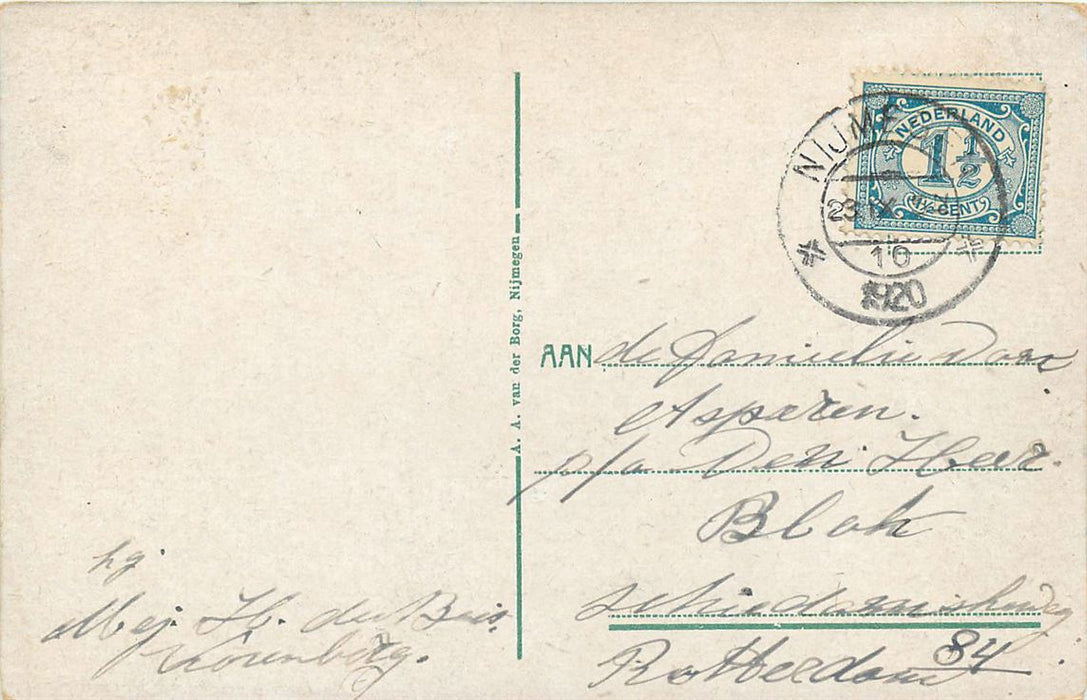 NEDERLAND
1 1/2
1½ CENT
NIJME
23
10
1920
A. A. van der Borg, Nijmegen
AAN de Familie van
Asperen.
p/a Den Heer.
Blok
Schiedamscheweg
84
Rotterdam
hg.
Mej. H. de